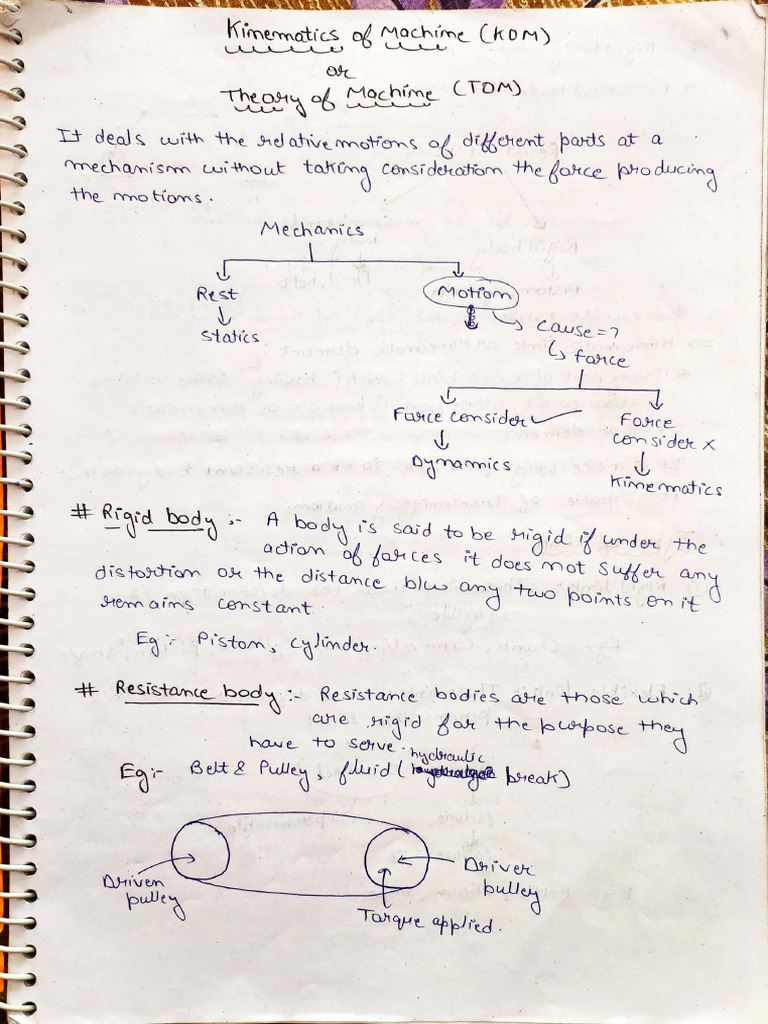 Kinematics of Machine (KOM)
or
Theory of Machine (TOM)
It deals with the relative motions of different parts at a
mechanism without taking consideration the force producing
the motions.
Mechanics
Rest
Motion
statics
cause = ?
force
Force consider ✓
Force
consider ×
Dynamics
Kinematics
# Rigid body :- A body is said to be rigid if under the
action of forces it does not suffer any
distortion or the distance b/w any two points on it
remains constant.
Eg :- Piston, cylinder.
# Resistance body :- Resistance bodies are those which
are rigid for the purpose they
have to serve.
Eg :- Belt & Pulley, fluid (hydraulic break)
Driven
pulley
Driver
pulley
Torque applied.